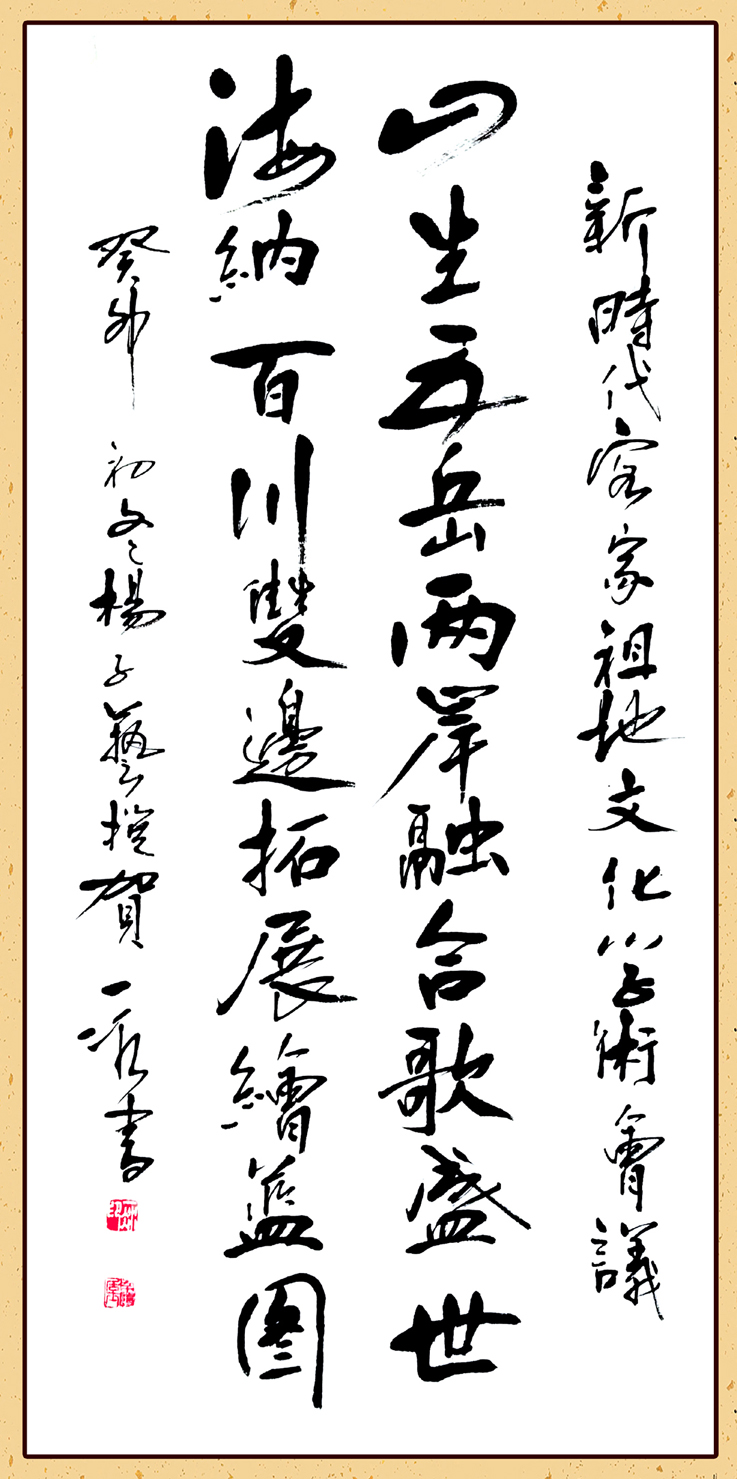 新時代客家祖地文化學術會議
山生五岳两岸融合歌盛世
海纳百川雙邊拓展繪蓝图
癸卯初冬楊子藝撰賀一泓書